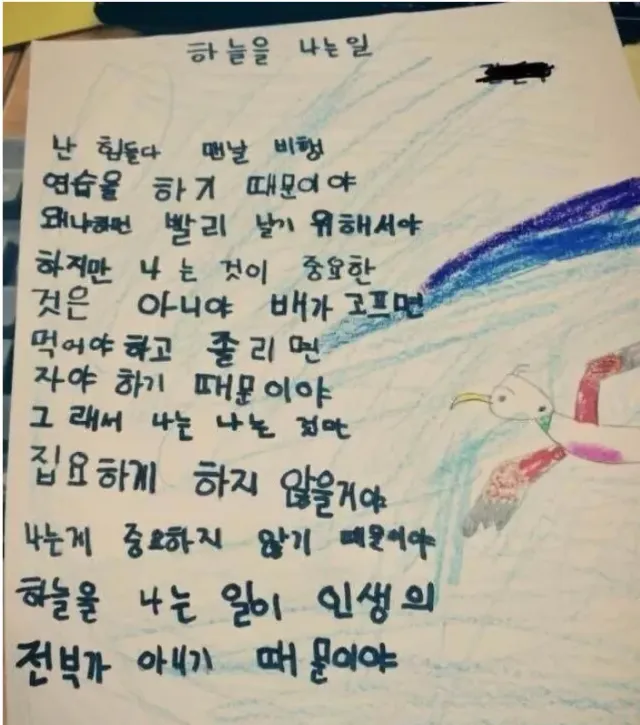 하늘을 나는일
난 힘들다 맨날 비행
연습을 하기 때문이야
왜냐하면 빨리 날기 위해서야
하지만 나 는 것이 중요한
것은 아니야 배가 고프면
먹어야 하고 졸 리 면
자야 하기 때문이야
그 래서 나는 나는 것만
집요하게 하지 않을거야
나는게 중요하지 않기 때문이야
하늘을 나는 일이 인생의
전부가 아니기 때 문이야